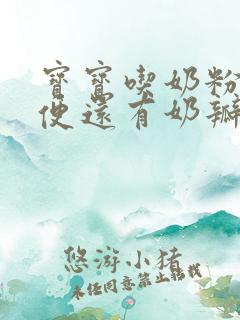 寶寶喫奶粉
便還有奶瓣
悠游小豬
未经同意禁止转载